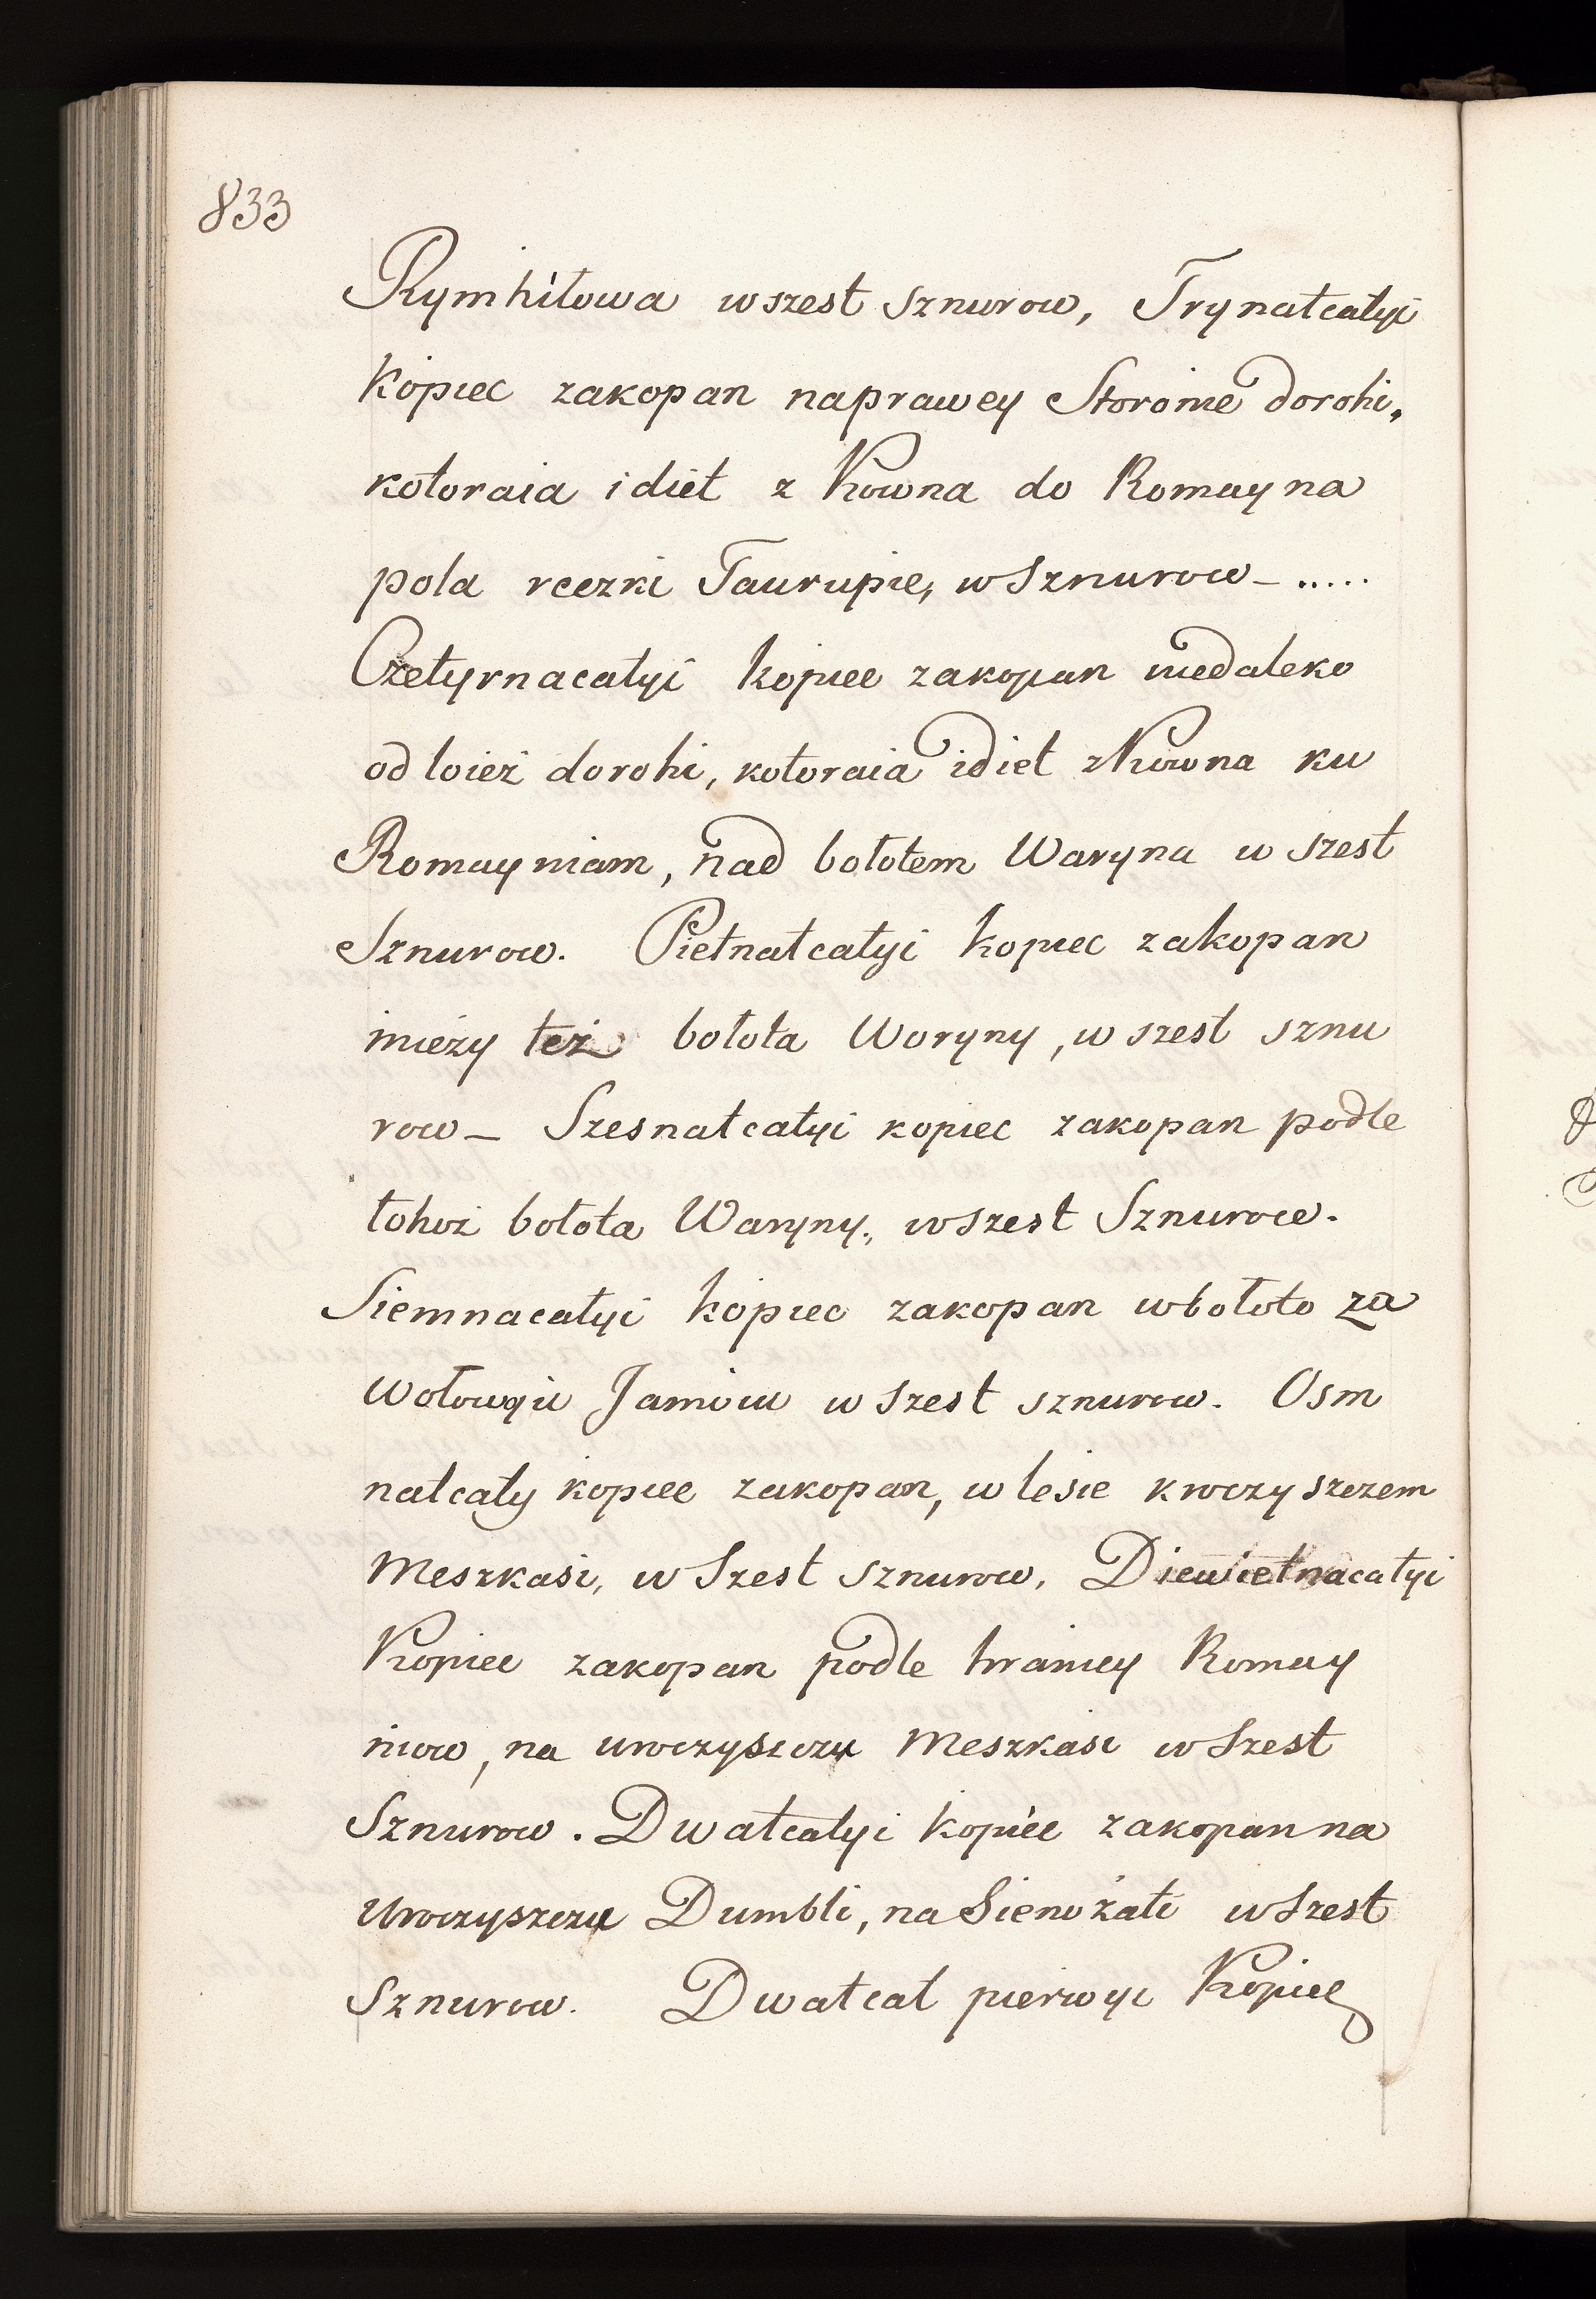 833
Rymhiłowa w szest sznurow, Trynatcatyi
Kopiec zakopan naprawey Storonie dorohi,
kotoraia idiet z Kowna do Romayna
pola reczki Taurupie, w Sznurow - .....
Czetyrnacatyi kopiec zakopan niedaleko
od toież dorohi, kotoraia idiet z Kowna ku
Romayniam, nad bołotem Waryna w szest
Sznurow. Pietnatcatyi kopiec zakopan
mieży też bołota Woryny, w szest sznu
row - Szesnatcatyi kopiec zakopan podle
tohoż bołota Waryny, w szest Sznurow.
Siemnacatyi kopiec zakopan w bołoto za
Wołowyu Jamoiu w szest sznurow. Osm
natcaty kopiec zakopan, w lesie kroczyszczem
Meszkasi, w Szest sznurow, Diewietnacatyi
Kopiec zakopan podle hranicy Romay
niow, na uroczyszczu Meszkasi w Szest
Sznurow. Dwatcatyi kopiec zakopan na
Uroczyszczu Dumbli, na Sienożati w Szest
Sznurow. Dwatcat pierwyi Kopiec